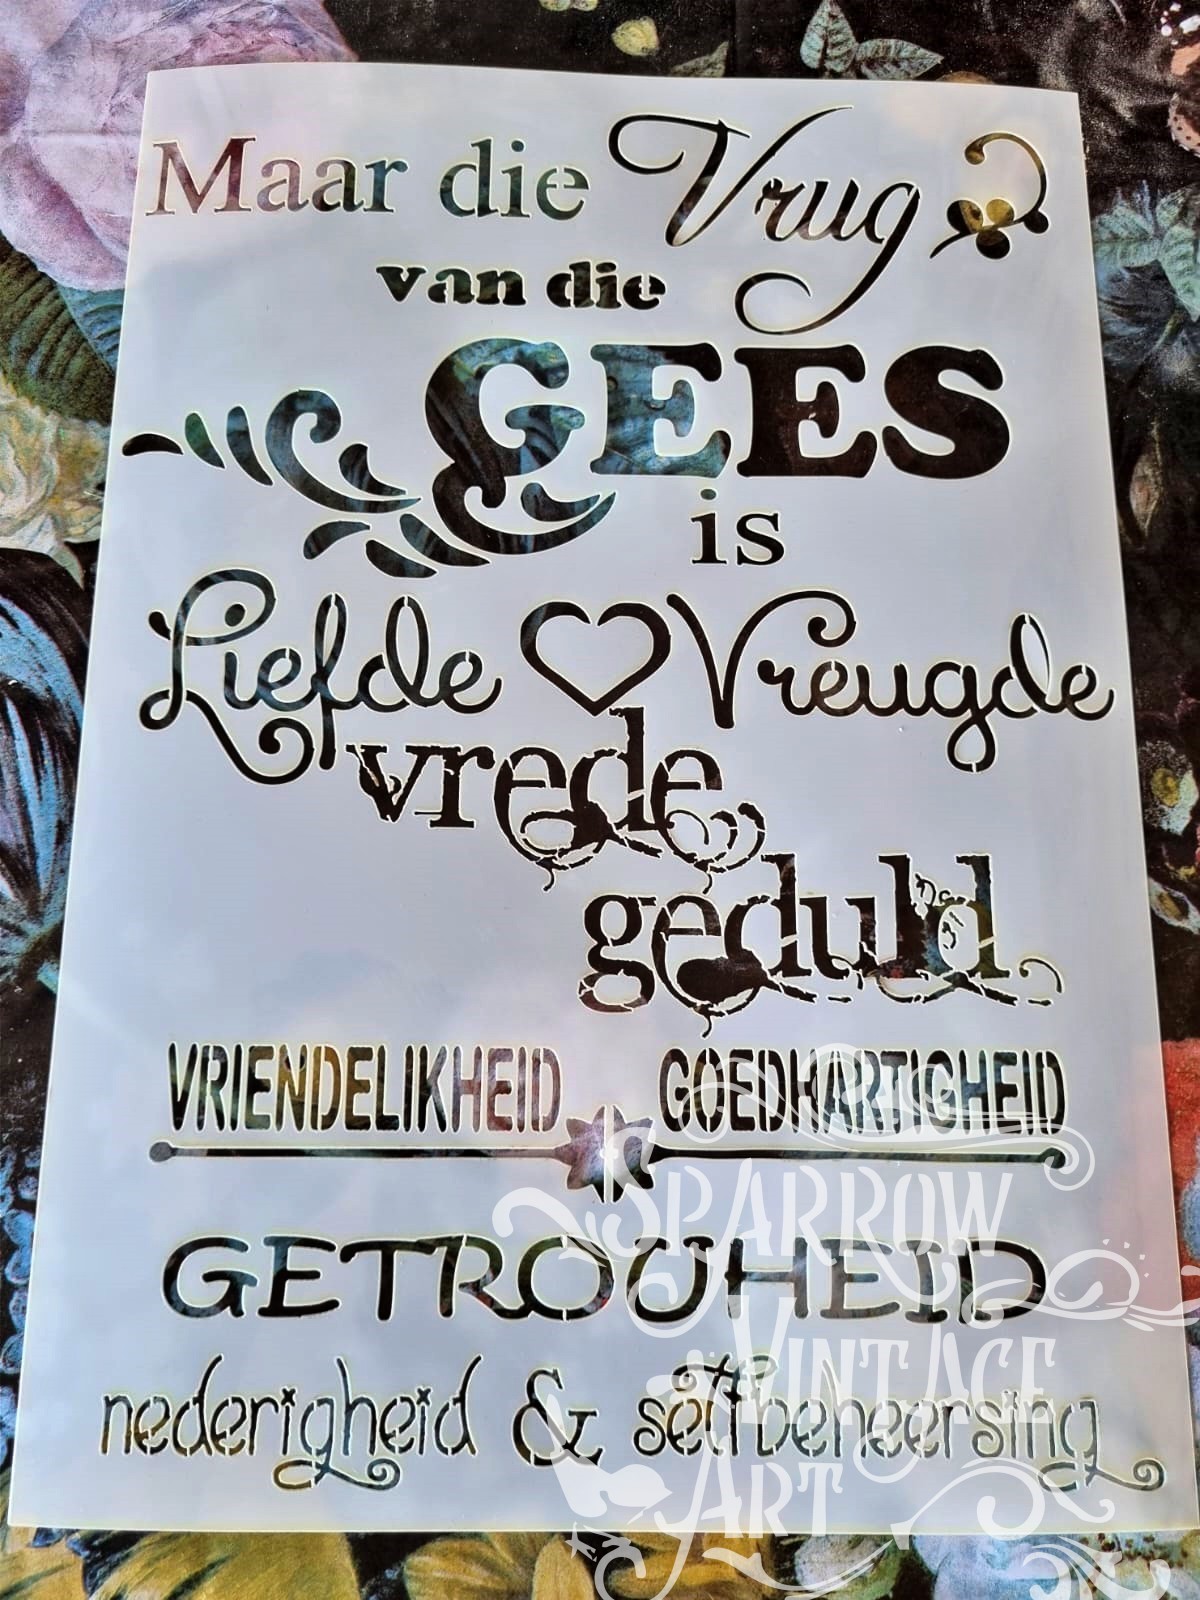 Maar die Vrug
van die
GEES
is
Liefde Vreugde
vrede
geduld
VRIENDELIKHEID GOEDHARTIGHEID
GETROUHEID
nederigheid & selfbeheersing
SPARROW
VINTAGE
ART